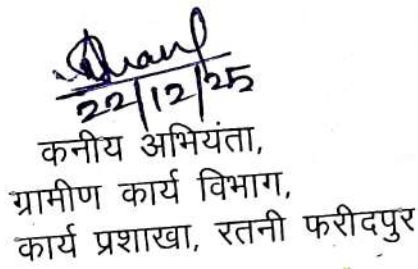 22/12/25
कनीय अभियंता,
ग्रामीण कार्य विभाग,
कार्य प्रशाखा, रतनी फरीदपुर